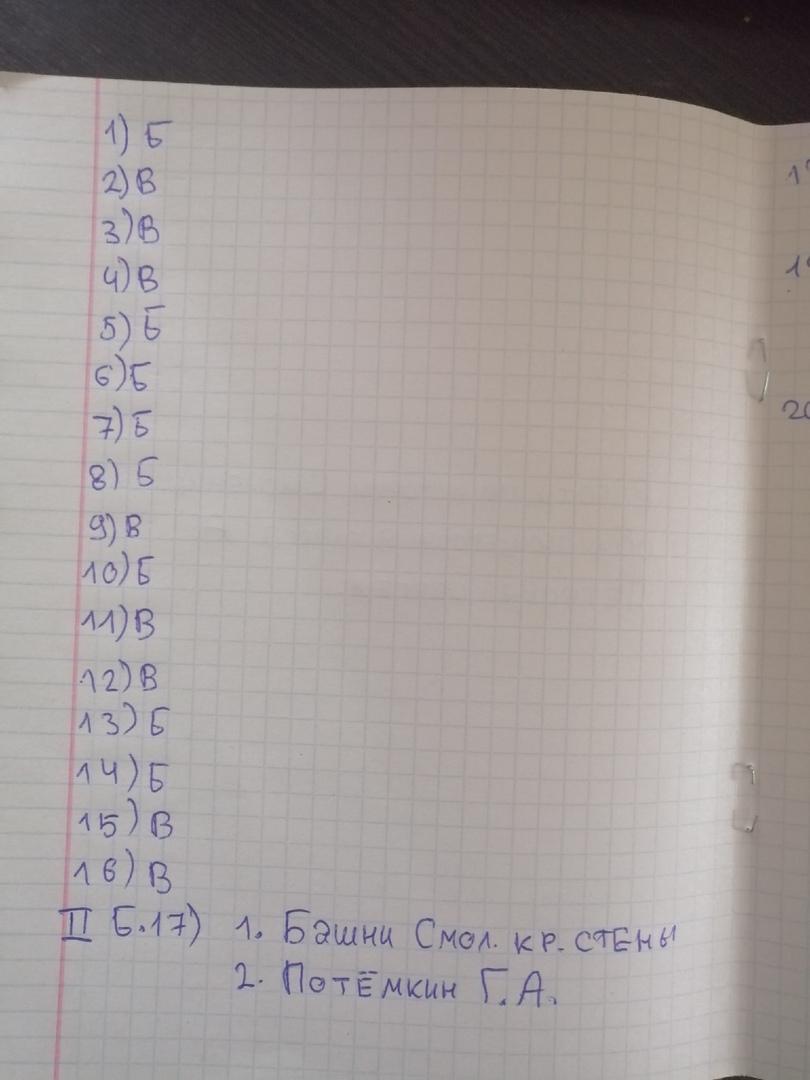 1) Б
2) В
3) В
4) В
5) Б
6) Б
7) Б
8) Б
9) В
10) Б
11) В
12) В
13) Б
14) Б
15) В
16) В
II Б.17) 1. Башни Смол. кр. стены
2. Потёмкин Г.А.